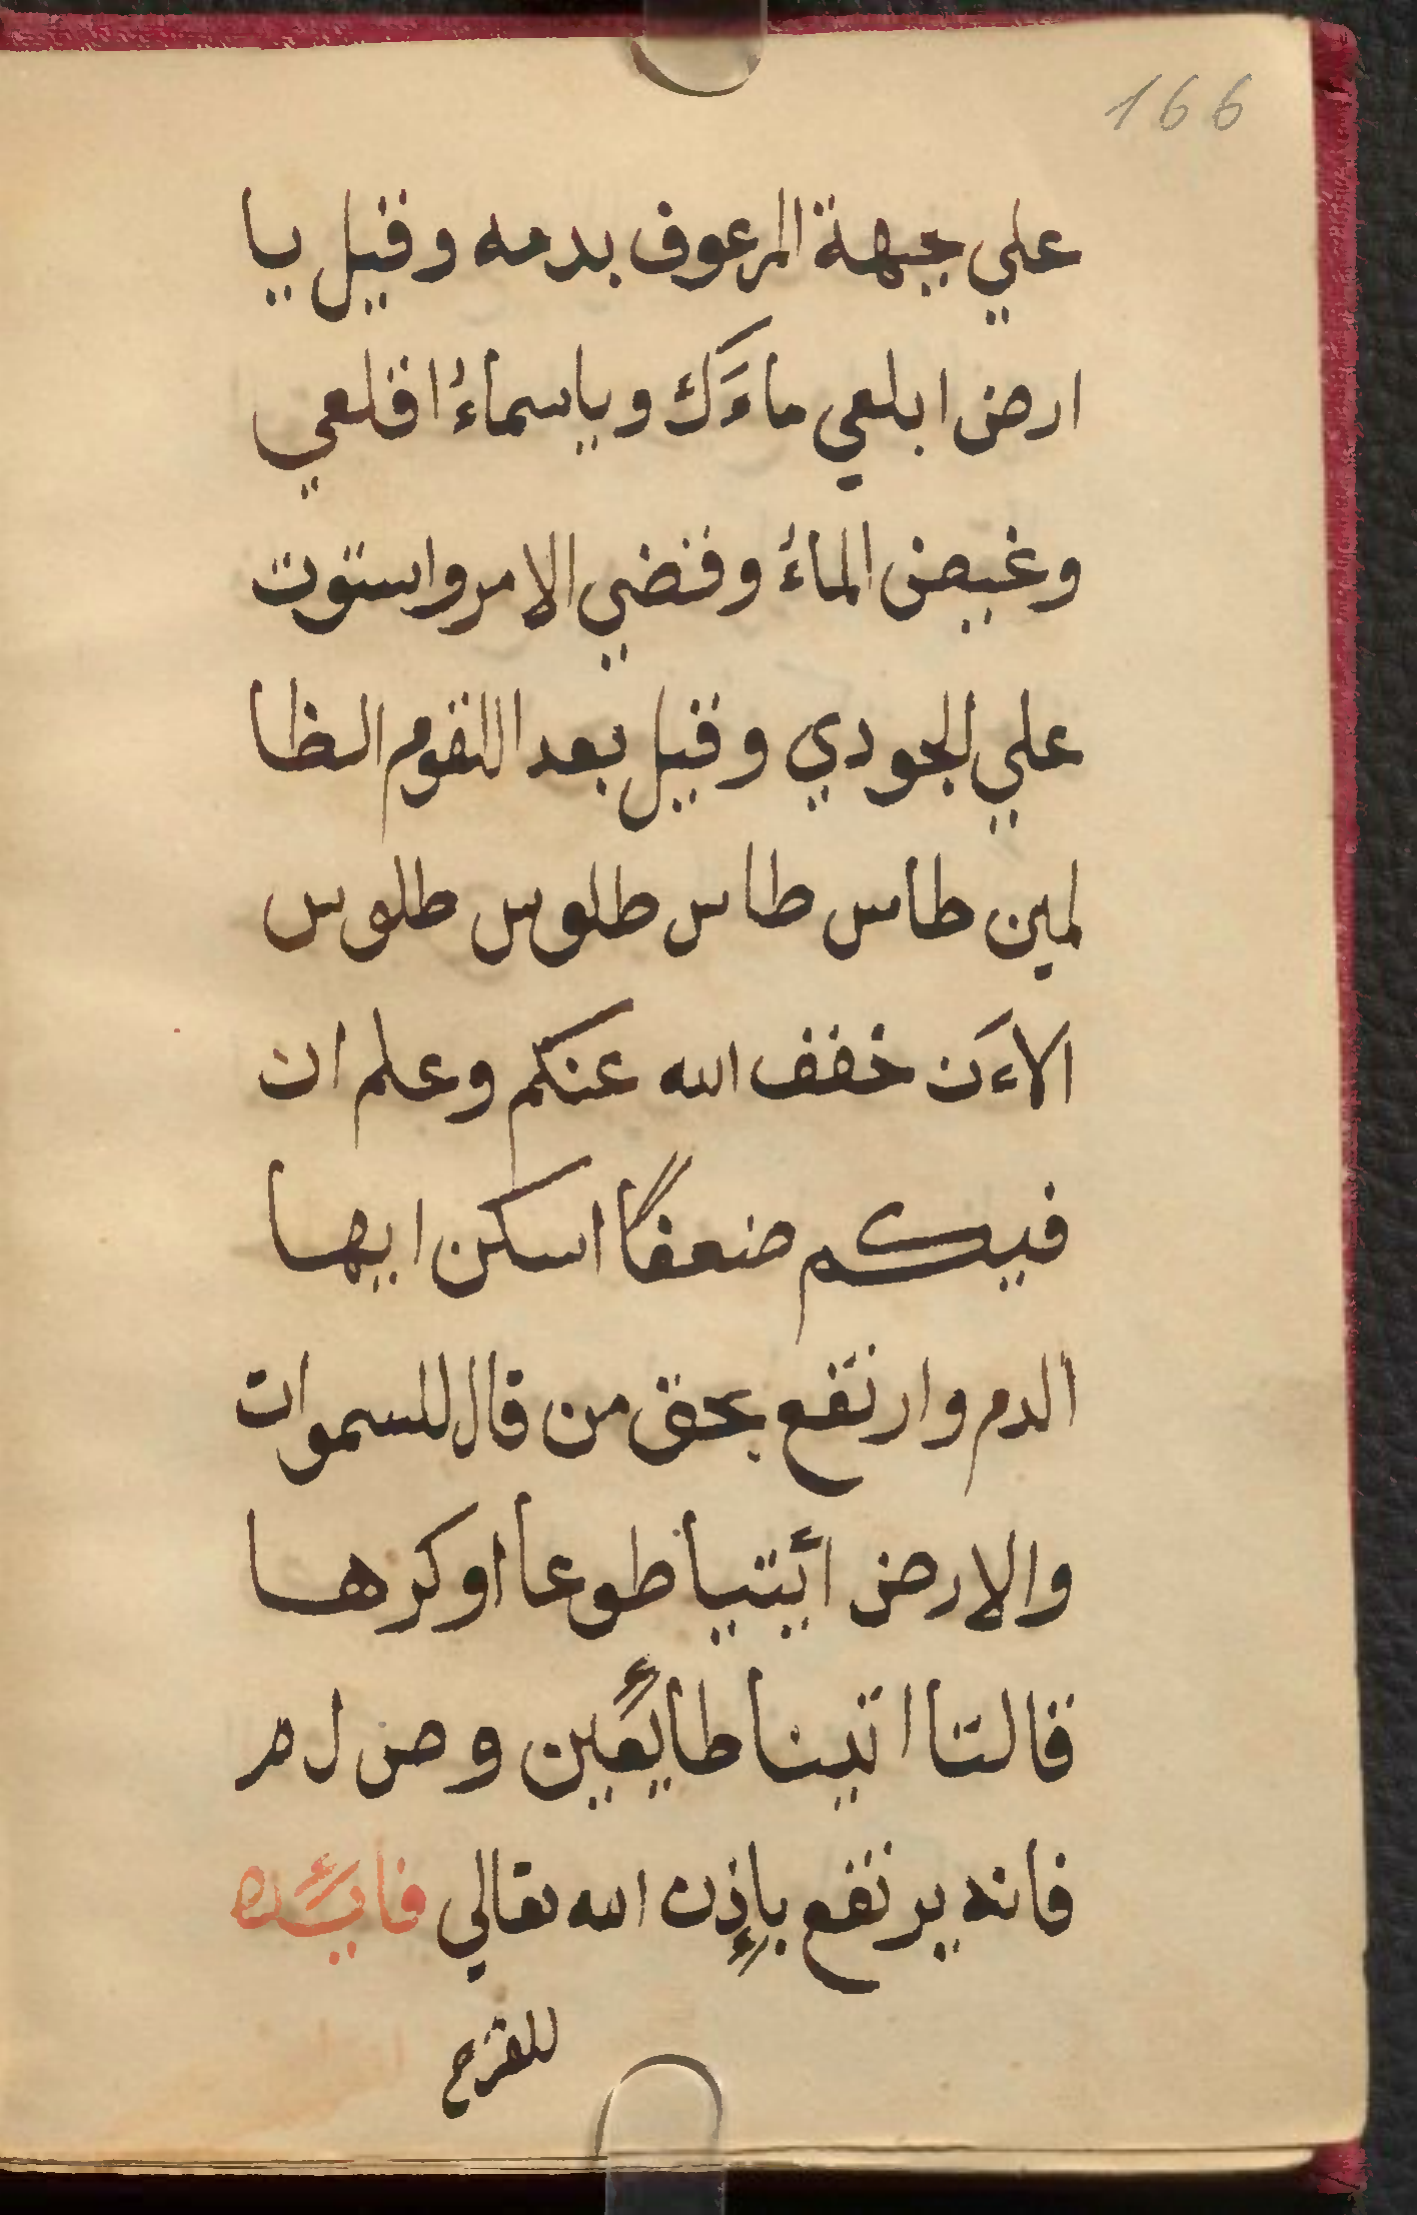 166
علي جبهة المرعوف بدمه وقيل يا
ارض ابلعي ماءَك وياسماءُ اقلعي
وغيض الماءُ وقضي الامر واستوت
علي الجودي وقيل بعدا للقوم الظا
لمين طاس طاس طلوس طلوس
الاءَن خفف الله عنكم وعلم ان
فيكم ضعفًا اسكن ايها
الدم وارتفع بحق من قال للسموات
والارض ائتيا طوعا اوكرها
قالتا اتينا طايعين و ص ل م
فانه يرتفع بإذن الله تعالي فايئده
للقرح